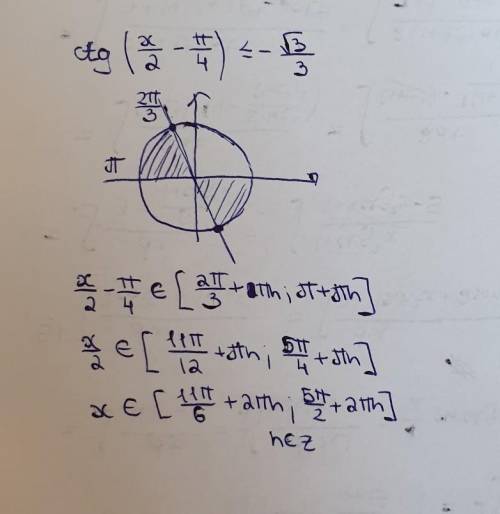 ctg (x/2 - π/4) ≤ - √3/3
2π/3
π
x/2 - π/4 ∈ [2π/3 + πn; π + πn]
x/2 ∈ [11π/12 + πn; 5π/4 + πn]
x ∈ [11π/6 + 2πn; 5π/2 + 2πn]
n∈Z